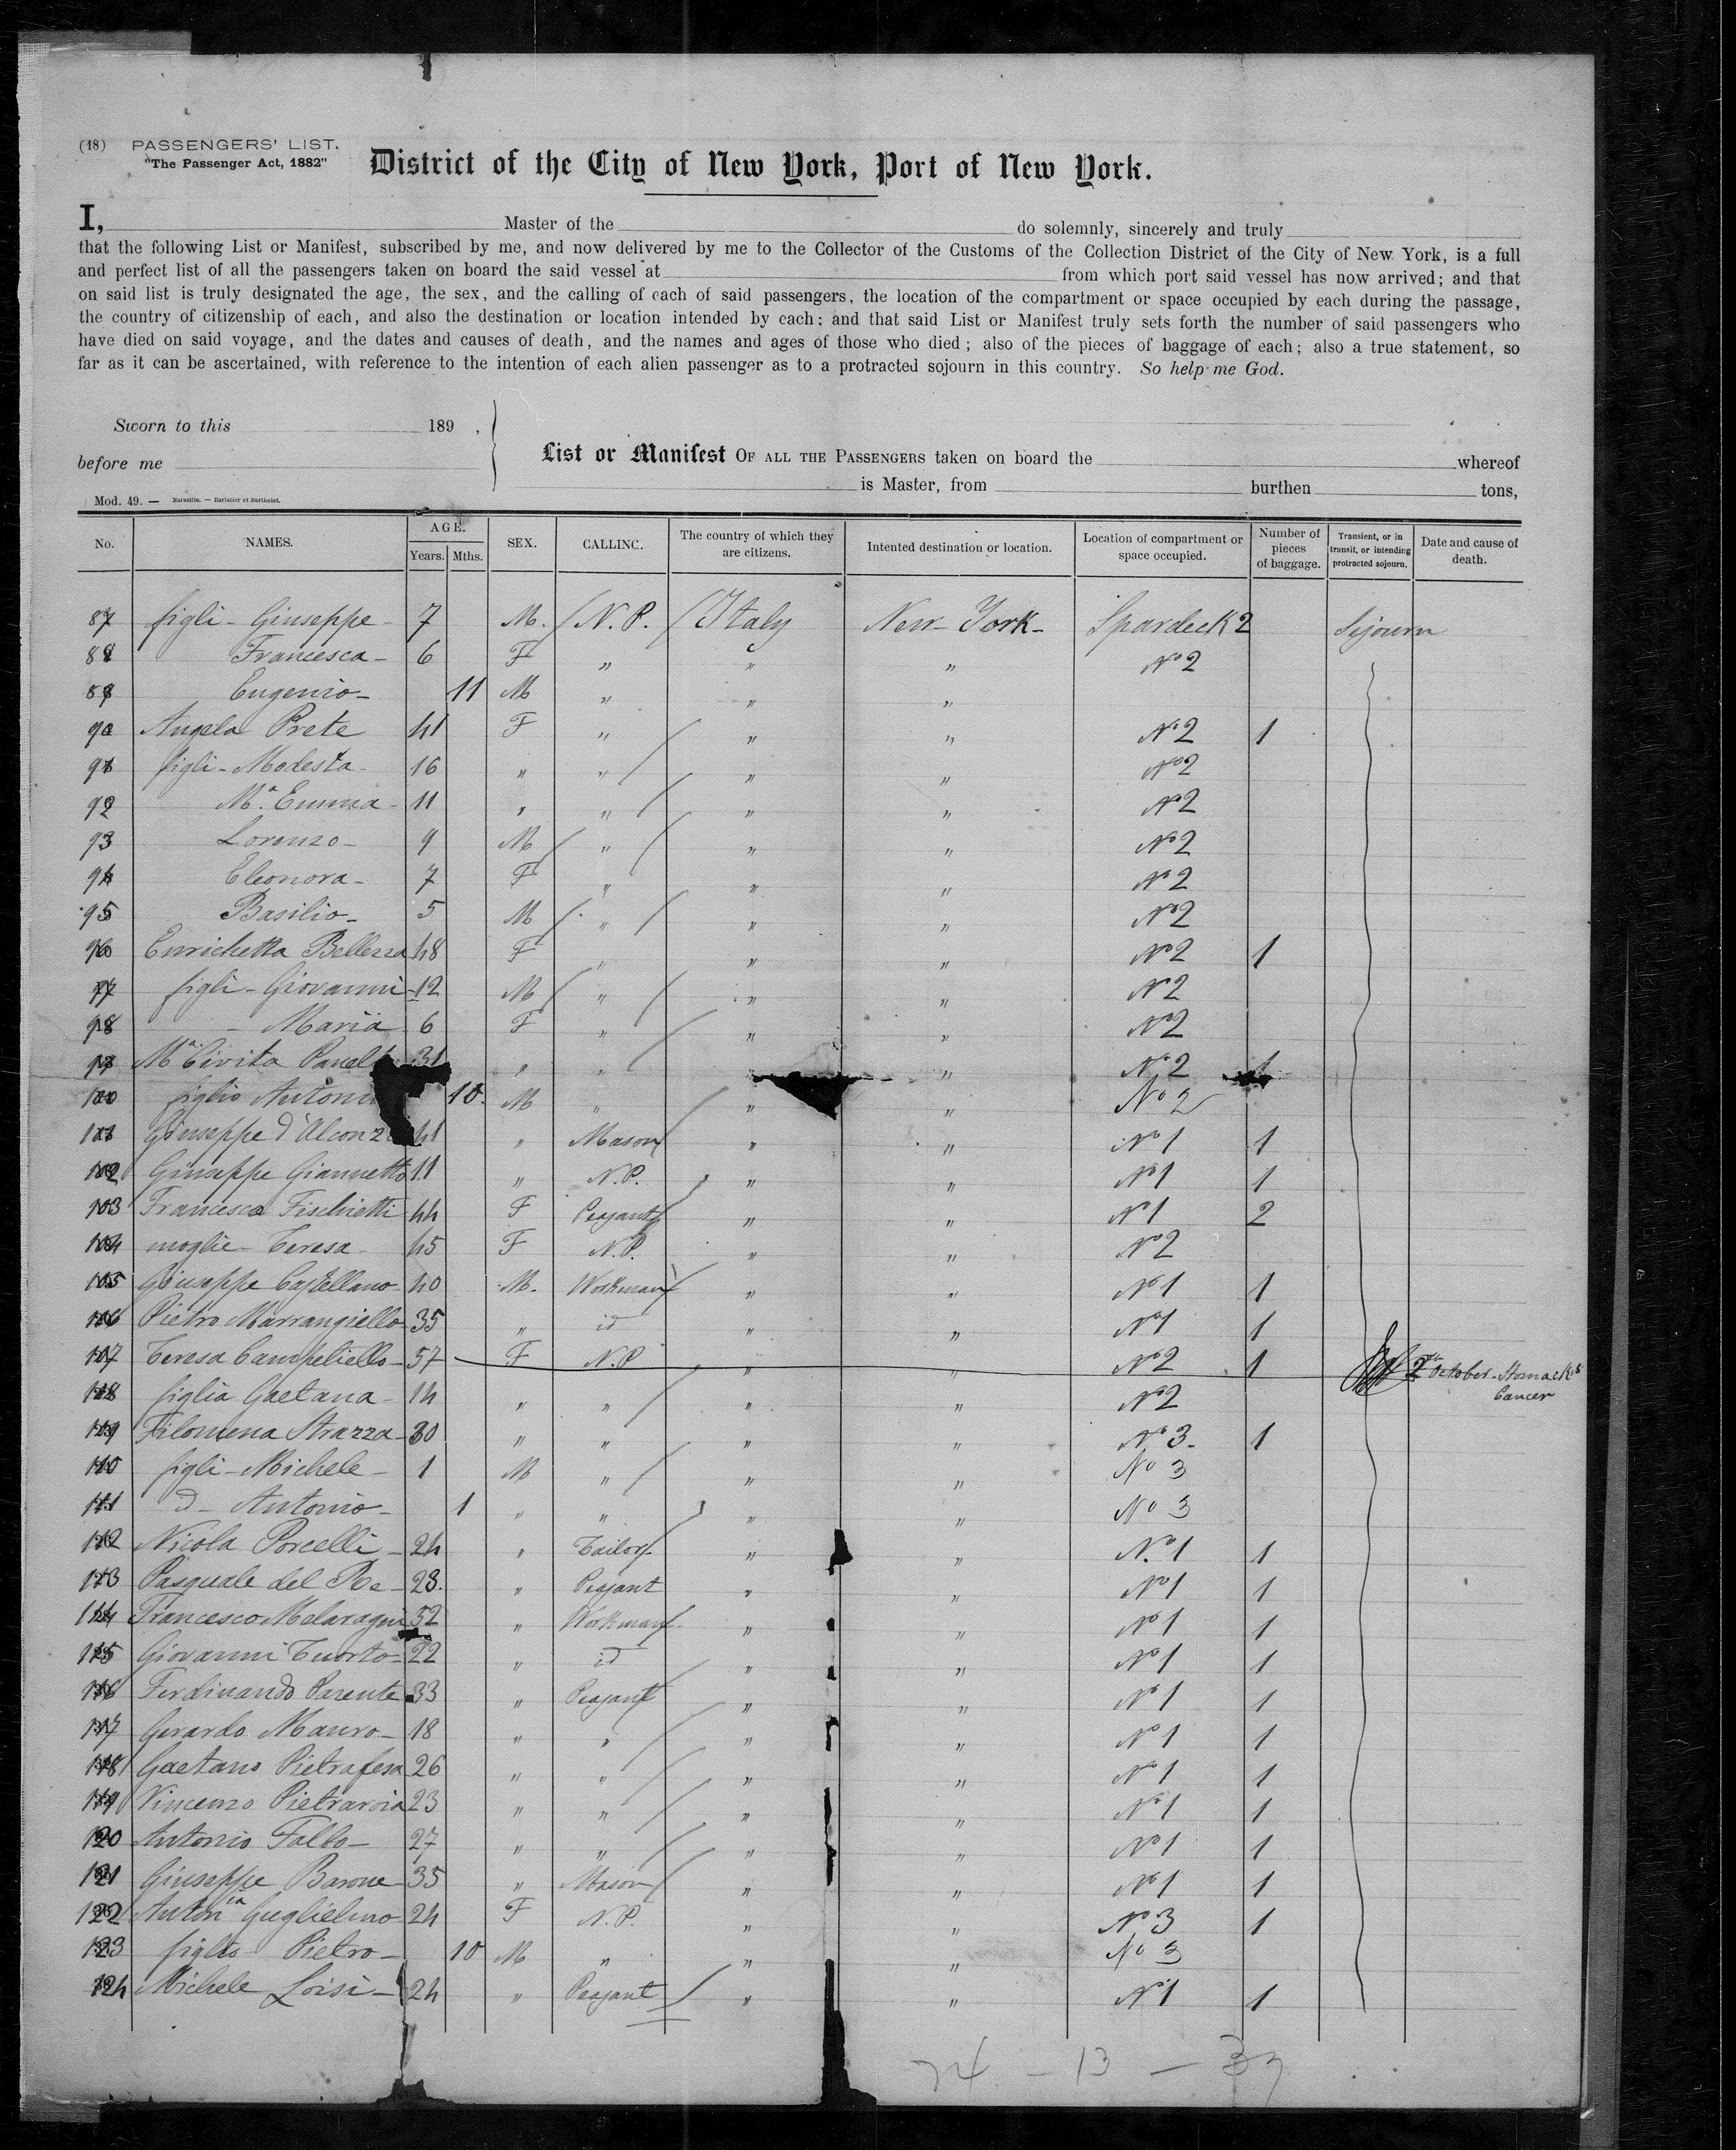 (18) PASSENGERS' LIST.
"The Passenger Act, 1882"
District of the City of New York, Port of New York.
I, Master of the do solemnly, sincerely and truly
that the following List or Manifest, subscribed by me, and now delivered by me to the Collector of the Customs of the Collection District of the City of New York, is a full
and perfect list of all the passengers taken on board the said vessel at from which port said vessel has now arrived; and that
on said list is truly designated the age, the sex, and the calling of each of said passengers, the location of the compartment or space occupied by each during the passage,
the country of citizenship of each, and also the destination or location intended by each: and that said List or Manifest truly sets forth the number of said passengers who
have died on said voyage, and the dates and causes of death, and the names and ages of those who died; also of the pieces of baggage of each; also a true statement, so
far as it can be ascertained, with reference to the intention of each alien passenger as to a protracted sojourn in this country. So help me God.
Sworn to this 189 ,
before me
List or Manifest OF ALL THE PASSENGERS taken on board the whereof
is Master, from burthen tons,
Mod. 49. — Marseille. — Barlatier et Barthelet.
No. NAMES. AGE. Years. Mths. SEX. CALLINC. The country of which they are citizens. Intented destination or location. Location of compartment or space occupied. Number of pieces of baggage. Transient, or in transit, or intending protracted sojourn. Date and cause of death.
87 figli - Giuseppe - 7 M. N.P. Italy New-York- Spardeck 2 Sejourn
88 Francesca - 6 F " " " N°2
89 Eugenio - 11 M " " "
90 Angela Prete 41 F " " " N°2 1
91 figli - Modesta - 16 " " " " N°2
92 Mª. Emma - 11 " " " " N°2
93 Lorenzo - 9 M " " " N°2
94 Eleonora - 7 F " " " N°2
95 Basilio - 5 M " " " N°2
96 Enrichetta Bellezza 48 F " " " N°2 1
97 figli - Giovanni - 12 M " " " N°2
98 - Maria 6 F " " " N°2
99 Mª Civita 31 " " " " N°2 1
100 figlio 10. M " " " N°2
101 Giuseppe 41 " Mason " " N°1 1
102 Giuseppe Giannetto 11 " N.P. " " N°1 1
103 Francesco Fischietti 44 F Peasant " " N°1 2
104 moglie - Teresa - 45 F N.P. " " N°2
105 Giuseppe Castellano - 40 M. Workman " " N°1 1
106 Pietro Marrangiello 35 " id " " N°1 1
107 Teresa Campeliello - 57 F N.P " " N°2 1 2 October - Stomack's Cancer
108 figlia Gaetana - 14 " " " " N°2
109 Filomena Strazza - 30 " " " " N°3 - 1
110 figli - Michele - 1 M " " " N°3
111 d - Antonio - 1 " " " " N°3
112 Nicola Porcelli - 24 " Tailor " " N.°1 1
113 Pasquale del Re - 28. " Peasant " " N°1 1
114 Francesco Melaragni 52 " Workman " " N°1 1
115 Giovanni Tuorto - 22 " id " " N°1 1
116 Ferdinando Parente 33 " Peasant " " N°1 1
117 Gerardo Mauro - 18 " " " " N°1 1
118 Gaetano Pietrafesa 26 " " " " N°1 1
119 Vincenzo Pietraroia 23 " " " " N°1 1
120 Antonio Falbo - 27 " " " " N°1 1
121 Giuseppe Barone 35 " Mason " " N°1 1
122 Antonia Guglielmo 24 F N.P. " " N°3 1
123 figlio Pietro - 10 M " " " N°3
124 Michele Loisi - 24 " Peasant " " N°1 1
74 - 13 - 37